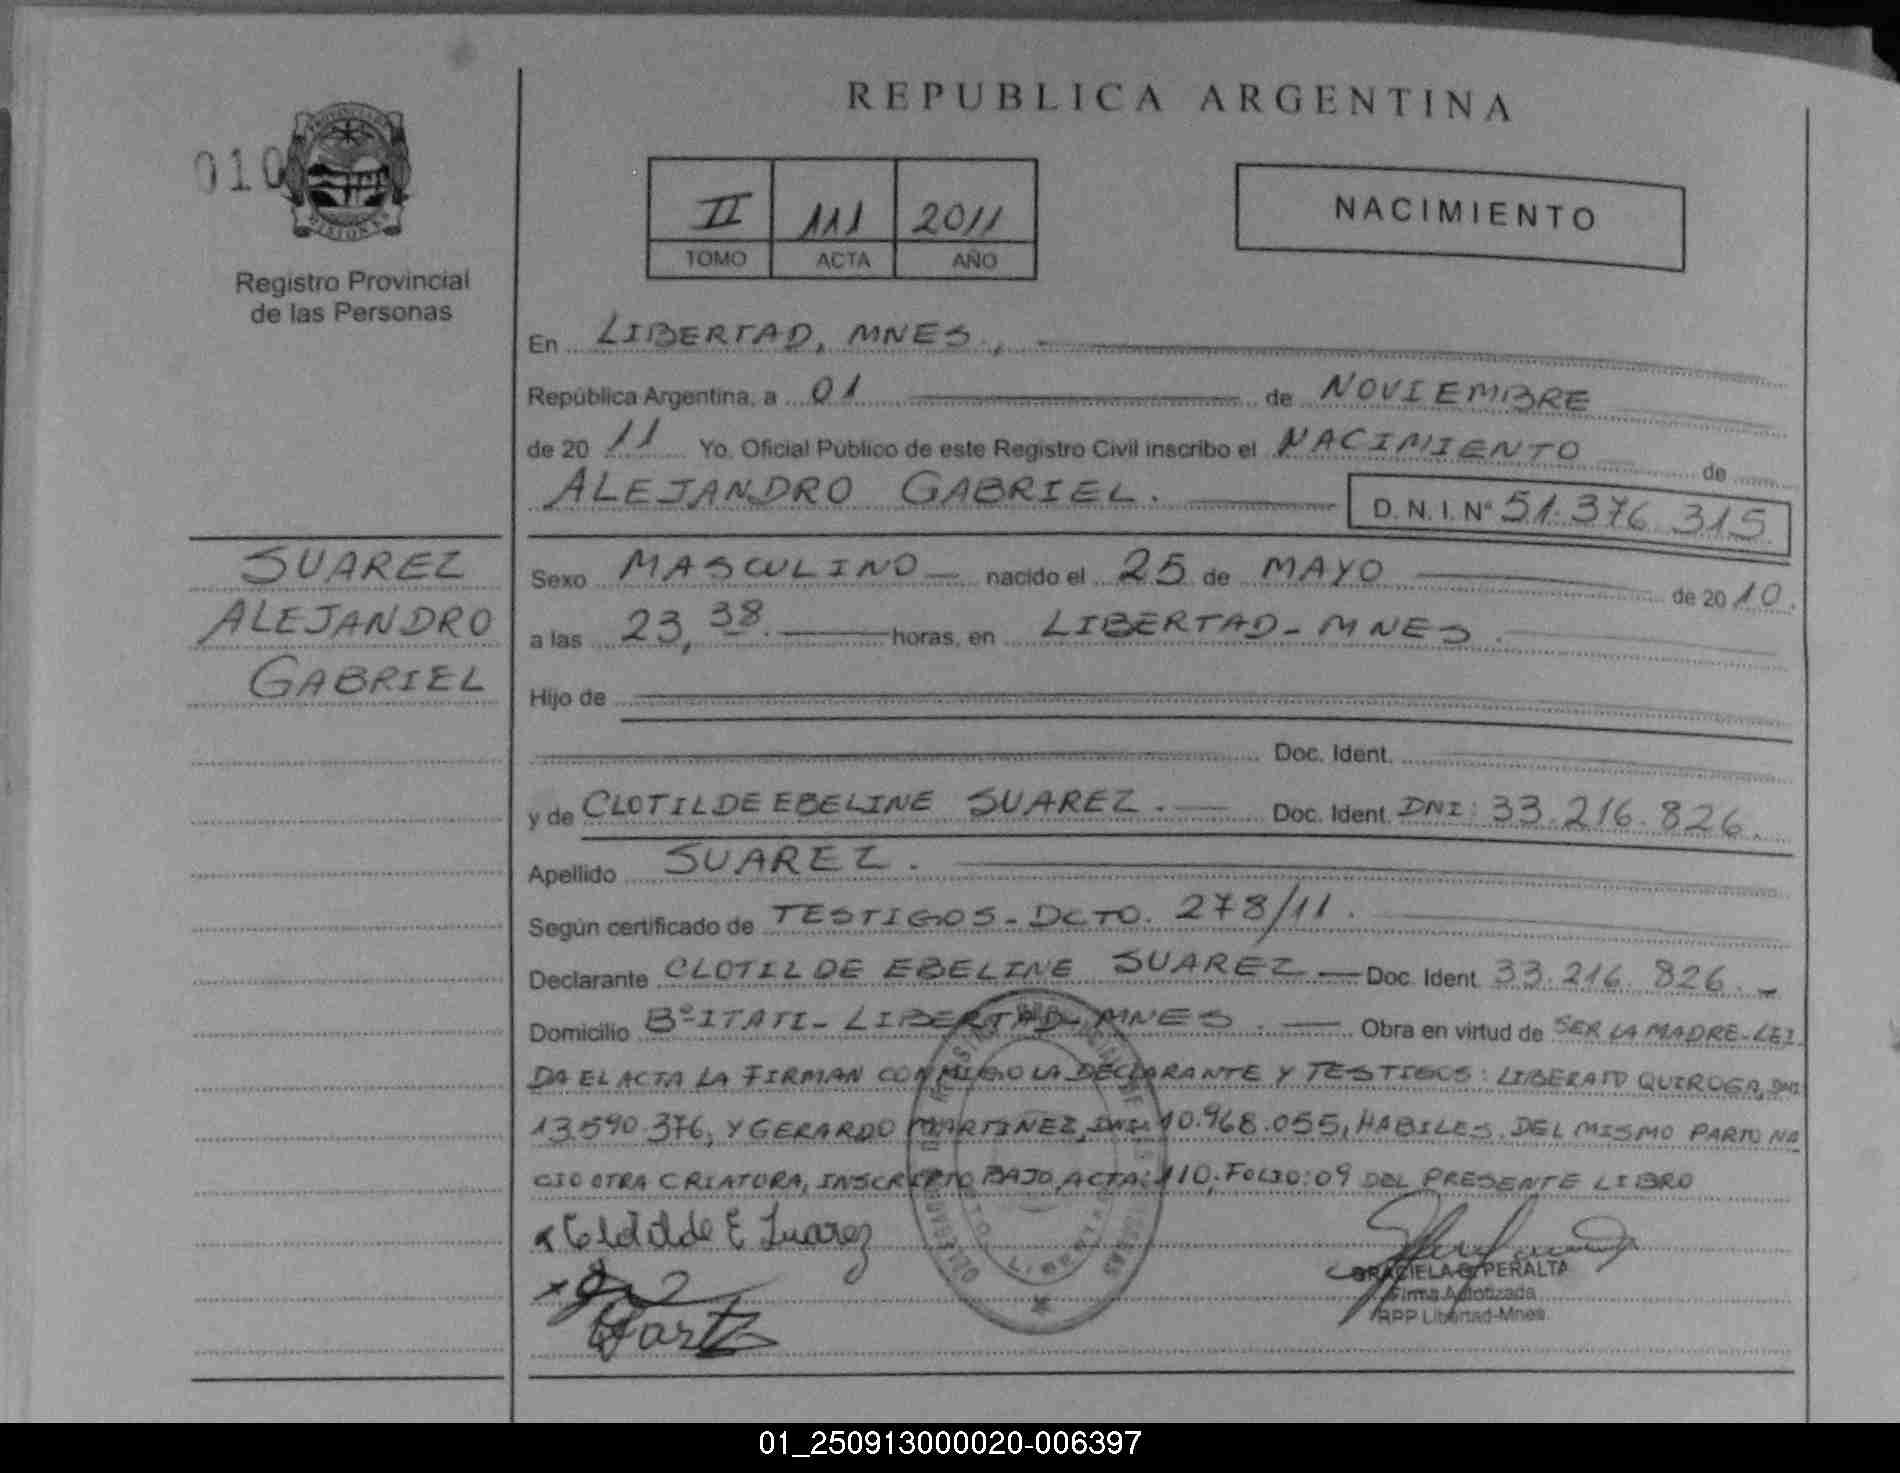 REPUBLICA ARGENTINA
010
II 111 2011
TOMO ACTA AÑO
NACIMIENTO
Registro Provincial
de las Personas
En LIBERTAD, MNES.,
República Argentina, a 01 de NOVIEMBRE
de 20 11 Yo, Oficial Público de este Registro Civil inscribo el NACIMIENTO de
ALEJANDRO GABRIEL. D. N. I. Nº 51.376.315
SUAREZ
ALEJANDRO
GABRIEL
Sexo MASCULINO nacido el 25 de MAYO de 20 10.
a las 23,38. horas, en LIBERTAD - MNES.
Hijo de
Doc. Ident.
y de CLOTILDE EBELINE SUAREZ. Doc. Ident. DNI: 33.216.826.
Apellido SUAREZ.
Según certificado de TESTIGOS - DCTO. 278/11.
Declarante CLOTILDE EBELINE SUAREZ Doc. Ident. 33.216.826.-
Domicilio Bº ITATI - LIBERTAD - MNES. Obra en virtud de SER LA MADRE - LEI
DA EL ACTA LA FIRMAN CONMIGO LA DECLARANTE Y TESTIGOS: LIBERATO QUIROGA, DNI
13.590.376, Y GERARDO MARTINEZ, DNI: 10.968.055, HABILES. DEL MISMO PARTO NA
CIO OTRA CRIATURA, INSCRIPTO BAJO ACTA: 110, FOLIO: 09 DEL PRESENTE LIBRO
Clotilde E Suarez
GRACIELA PERALTA
Firma Autorizada
RPP Libertad-Mnes.
01_250913000020-006397